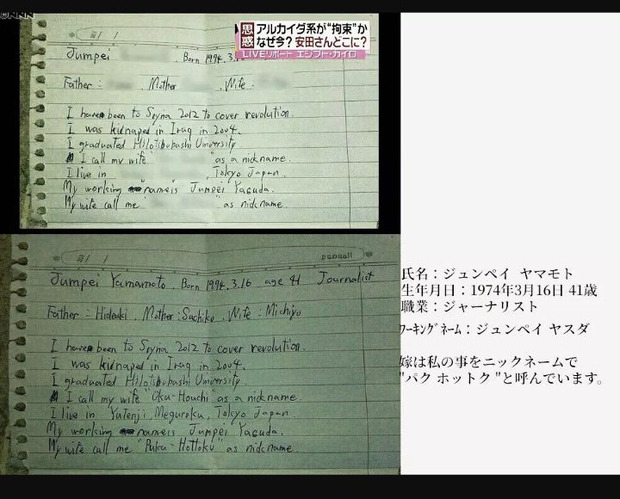 思惑
アルカイダ系が“拘束”か
なぜ今？安田さんどこに？
LIVEリポート エジプト・カイロ
Jumpei , Born 1974.3.
Father : , Mother , Wife :
I have been to Syria 2012 to cover revolution.
I was kidnaped in Iraq in 2004.
I graduated Hitotsubashi University
I call my wife " " as a nickname.
I live in , Tokyo Japan.
My working name is Jumpei Yasuda.
My wife call me " " as nickname.
Jumpei Yamamoto, Born 1974.3.16 age 41 Journalist
Father : Hideaki, Mother : Sachiko, Wife : Michiyo
I have been to Syria 2012 to cover revolution.
I was kidnaped in Iraq in 2004.
I graduated Hitotsubashi University
I call my wife "Oku-Houchi" as a nickname.
I live in Yutenji, Meguroku, Tokyo Japan
My working name is Jumpei Yasuda.
My wife call me "Puku-Hottoku" as nickname.
氏名：ジュンペイ ヤマモト
生年月日：1974年3月16日 41歳
職業：ジャーナリスト
ﾜｰｷﾝｸﾞﾈｰﾑ：ジュンペイ ヤスダ
嫁は私の事をニックネームで
"パク ホットク "と呼んでいます。